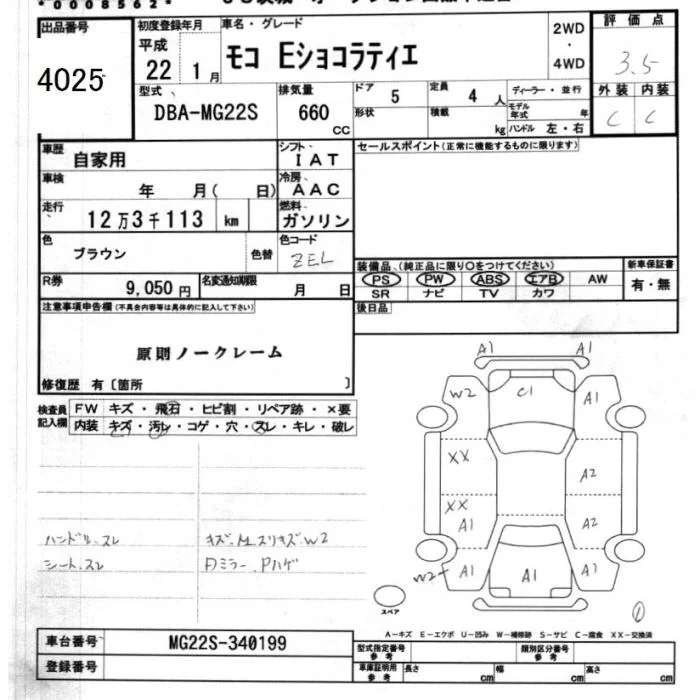 *0008562*
出品番号
4025
初度登録年月
平成
22 1 月
車名・グレード
モコ Eショコラティエ
2WD
・
4WD
評価点
3.5
外装 内装
C C
型式
DBA-MG22S
排気量
660
CC
ドア
5
定員
4 人
ディーラー・並行
形状
積載
kg
モデル年式 年
ハンドル 左・右
車歴
自家用
シフト
IAT
車検
年 月( 日)
冷房
AAC
走行
12万3千113 km
燃料
ガソリン
色
ブラウン
色替
色コード
ZEL
R券
9,050円
名変通知期限
月 日
セールスポイント(正常に機能するものに限ります)
装備品、(純正品に限り○をつけてください)
PS PW ABS エアB AW
SR ナビ TV カワ
新車保証書
有・無
後日品
注意事項申告欄(不具合内容等は具体的に記入して下さい)
原則ノークレーム
修復歴 有〔箇所 〕
検査員
記入欄
FW キズ・飛石・ヒビ割・リペア跡・×要
内装 キズ・汚レ・コゲ・穴・スレ・キレ・破レ
ハンドル.スレ
シート.スレ
Dミラー.Pハゲ
A1 A1
W2 C1 A1
XX A2
XX
A1 A2
W2 A1 A1 A1
スペア
1
A-キズ E-エクボ U-凹み W-補修跡 S-サビ C-腐食 XX-交換済
車台番号
MG22S-340199
登録番号
型式指定番号
参考
類別区分番号
参考
車庫証明用
参考
長さ cm
幅 cm
高さ cm